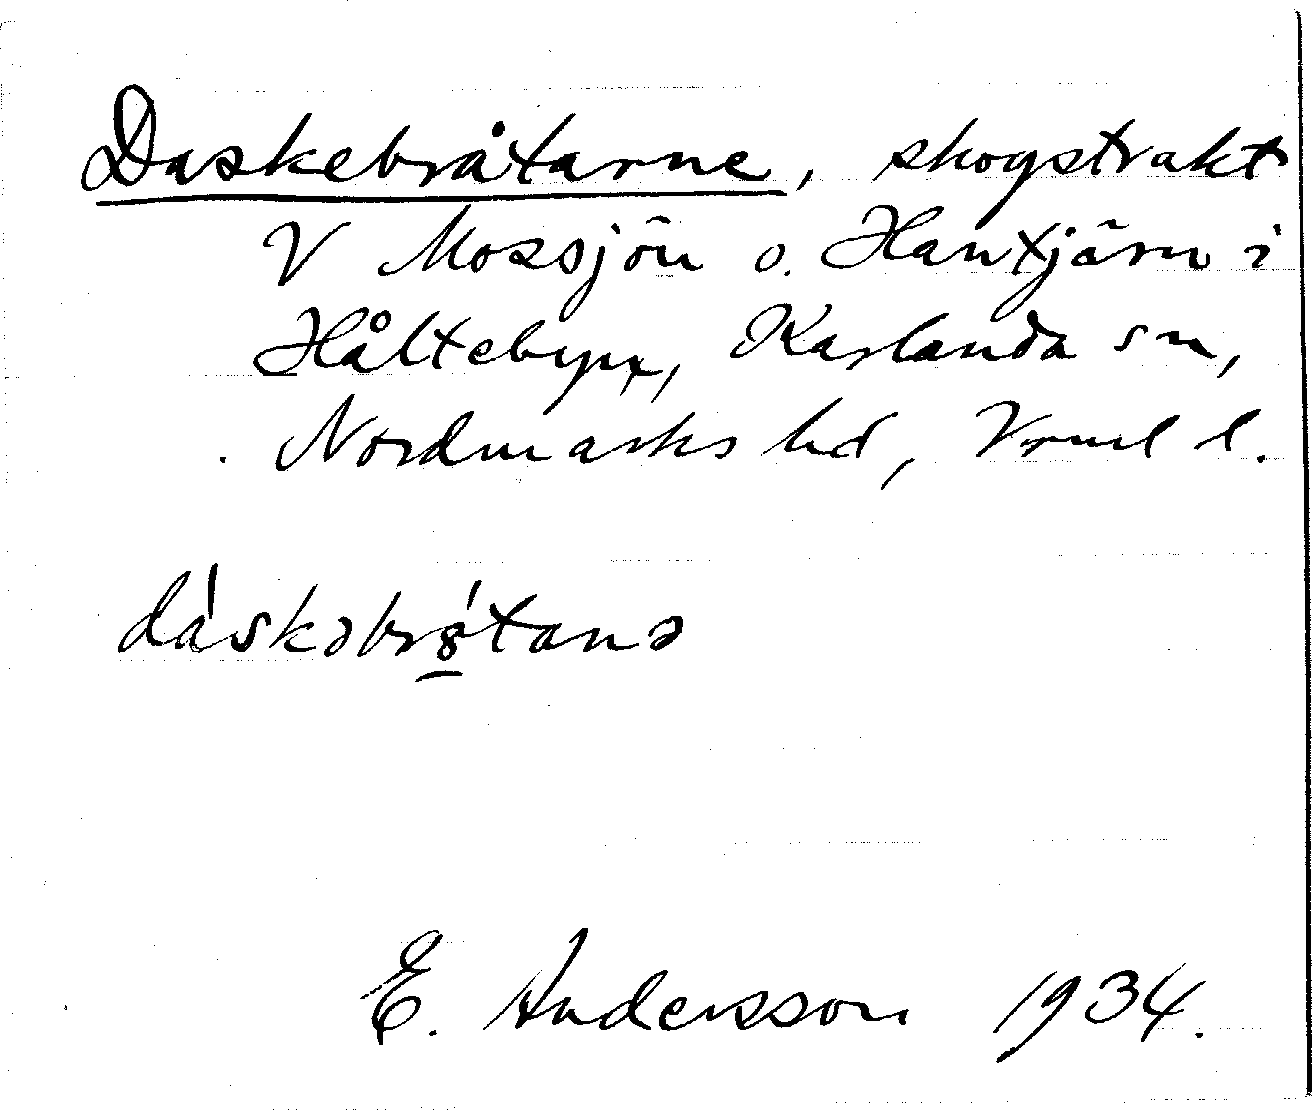 Daskebråtarne, skogstrakt
V Mossjön o. Hantjärn i
Håltebyn, Karlanda sn,
Nordmarks hd, Vrml l.
dáskəbrǻtanə
E. Andersson 1934.